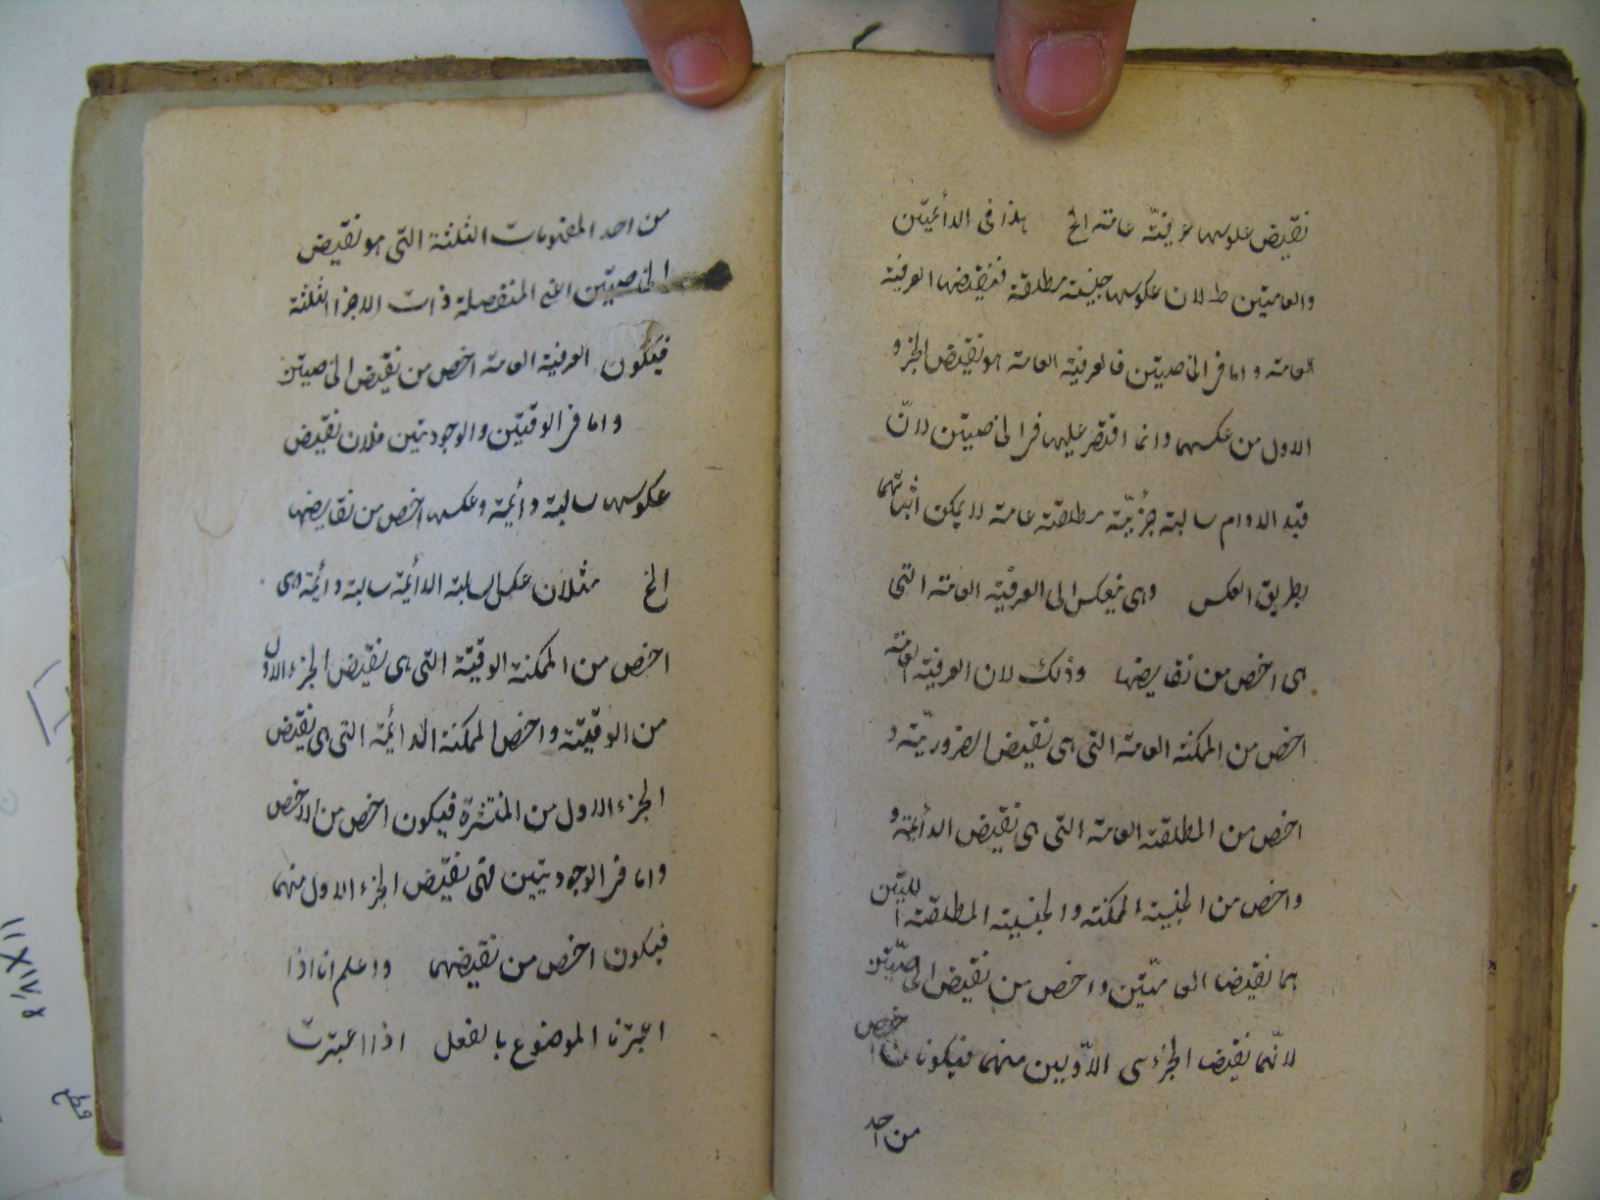 نقيض عكوسها عرفيّة عامة الخ هذا فى الدائميّتين
والعامتين ط لان عكوسها حينية مطلقة فنقيضها العرفية
العامة واما فى الخاصيتين فالعرفية العامة هو نقيض الجزو
الاول من عكسهما وانما اقتصر عليها فى الخاصيتين لانّ
قيد الدوام سالبة جزئيّة مطلقة عامة لا يمكن اثباتهما
بطريق العكس وهى تنعكس الى العرفيّة العامة التى
هى اخص من نقايضها وذلك لان العرفية العامة
اخص من الممكنة العامة التى هى نقيض الضروريّة و
اخص من المطلقة العامة التى هى نقيض الدائمة و
واخص من الحينية الممكنة والحينية المطلقة اللتين
هما نقيضا العامّتين واخص من نقيض الخاصّيتين
لانّهما نقيضا الجزءى الاوّليين منهما فيكونان اخص
من احد
من احد المفهومات الثلثة التى هو نقيض
الخاصيّتين اعنى المنفصلة ذات الاجزا الثلثة
فيكون العرفية العامة اخص من نقيض الخاصيتين
واما فى الوقتيّتين والوجوديتين فلان نقيض
عكوسها سالبة دائمة وعكسها اخص من نقايضها
الخ مثلا ان عكس السالبة الدائمة سالبة دائمة وهى
اخص من الممكنة الوقتيّة التى هى نقيض الجزء الاول
من الوقتيّة واخص الممكنة الدائمة التى هى نقيض
الجزء الاول من المنتشرة فيكون اخص من الاخص
واما فى الوجوديتين فهى نقيض الجزء الاول منهما
فيكون اخص من نقيضهما واعلم انا اذا
اعتبرنا الموضوع بالفعل اذا اعتبرت